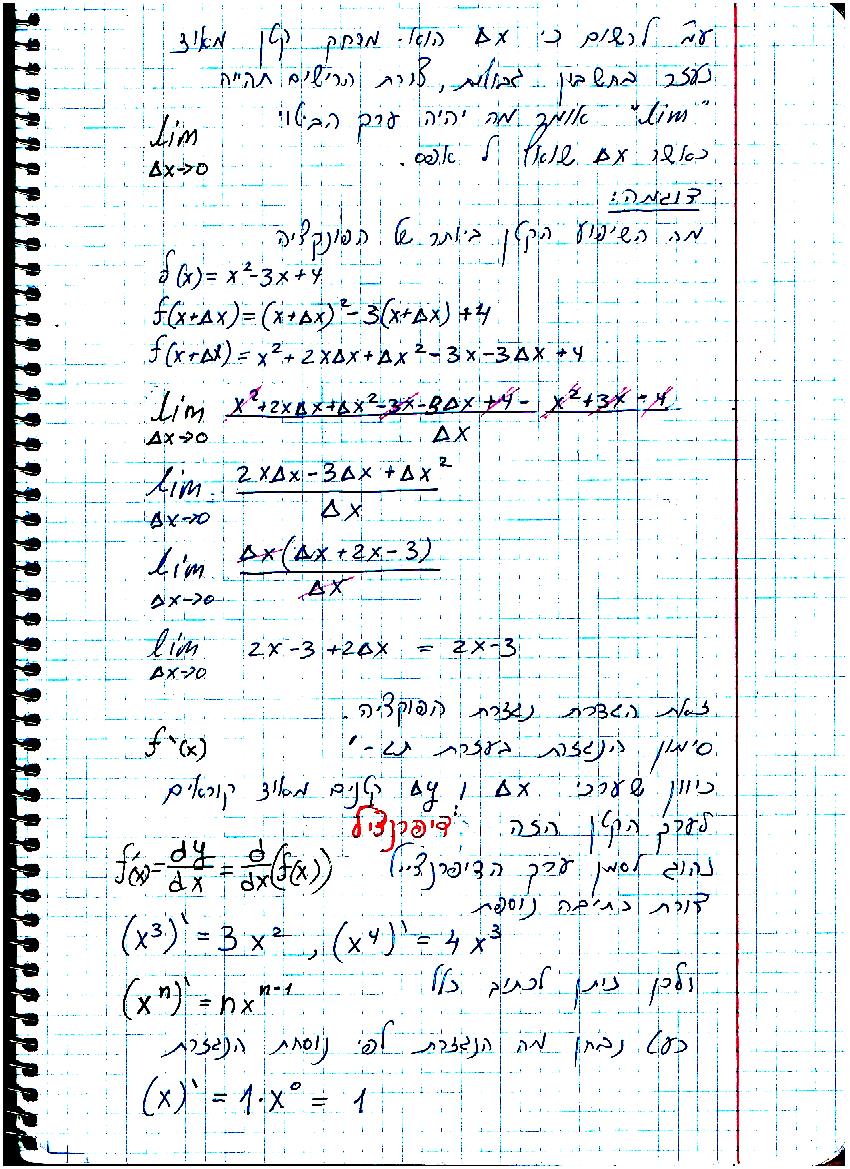 ע״מ לרשום כי Δx הוא מרחק קטן מאוד
נעזר בחשבון גבולות, צורת הרישום תהייה
"lim" אומר מה יהיה ערך הביטוי
lim Δx→0
כאשר Δx שואף ל אפס.
דוגמה:
מה השיפוע הקטן ביותר של הפונקציה
f(x) = x²-3x+4
f(x+Δx) = (x+Δx)² - 3(x+Δx) + 4
f(x+Δx) = x² + 2xΔx + Δx² - 3x - 3Δx + 4
lim Δx→0 (x²+2xΔx+Δx²-3x-3Δx+4 - x²+3x-4) / Δx
lim Δx→0 (2xΔx-3Δx+Δx²) / Δx
lim Δx→0 Δx(Δx+2x-3) / Δx
lim Δx→0 2x-3+2Δx = 2x-3
זאת הגדרת נגזרת הפוקציה.
סימון הנגזרת בעזרת תג - ' f`(x)
כיוון שערכי Δx ו Δy קטנים מאוד קוראים
לערך הקטן הזה דיפרנציל
נהוג לסמן ערך הדיפרנצייל f'(x) = dy/dx = d/dx (f(x))
צורת כתיבה נוספת
(x³)` = 3x² , (x⁴)` = 4x³
ולכן ניתן לכתוב כלל
(xⁿ)` = nxⁿ⁻¹
כעט נבחן מה הנגזרת לפי נוסחת הנגזרת
(x)` = 1·x⁰ = 1